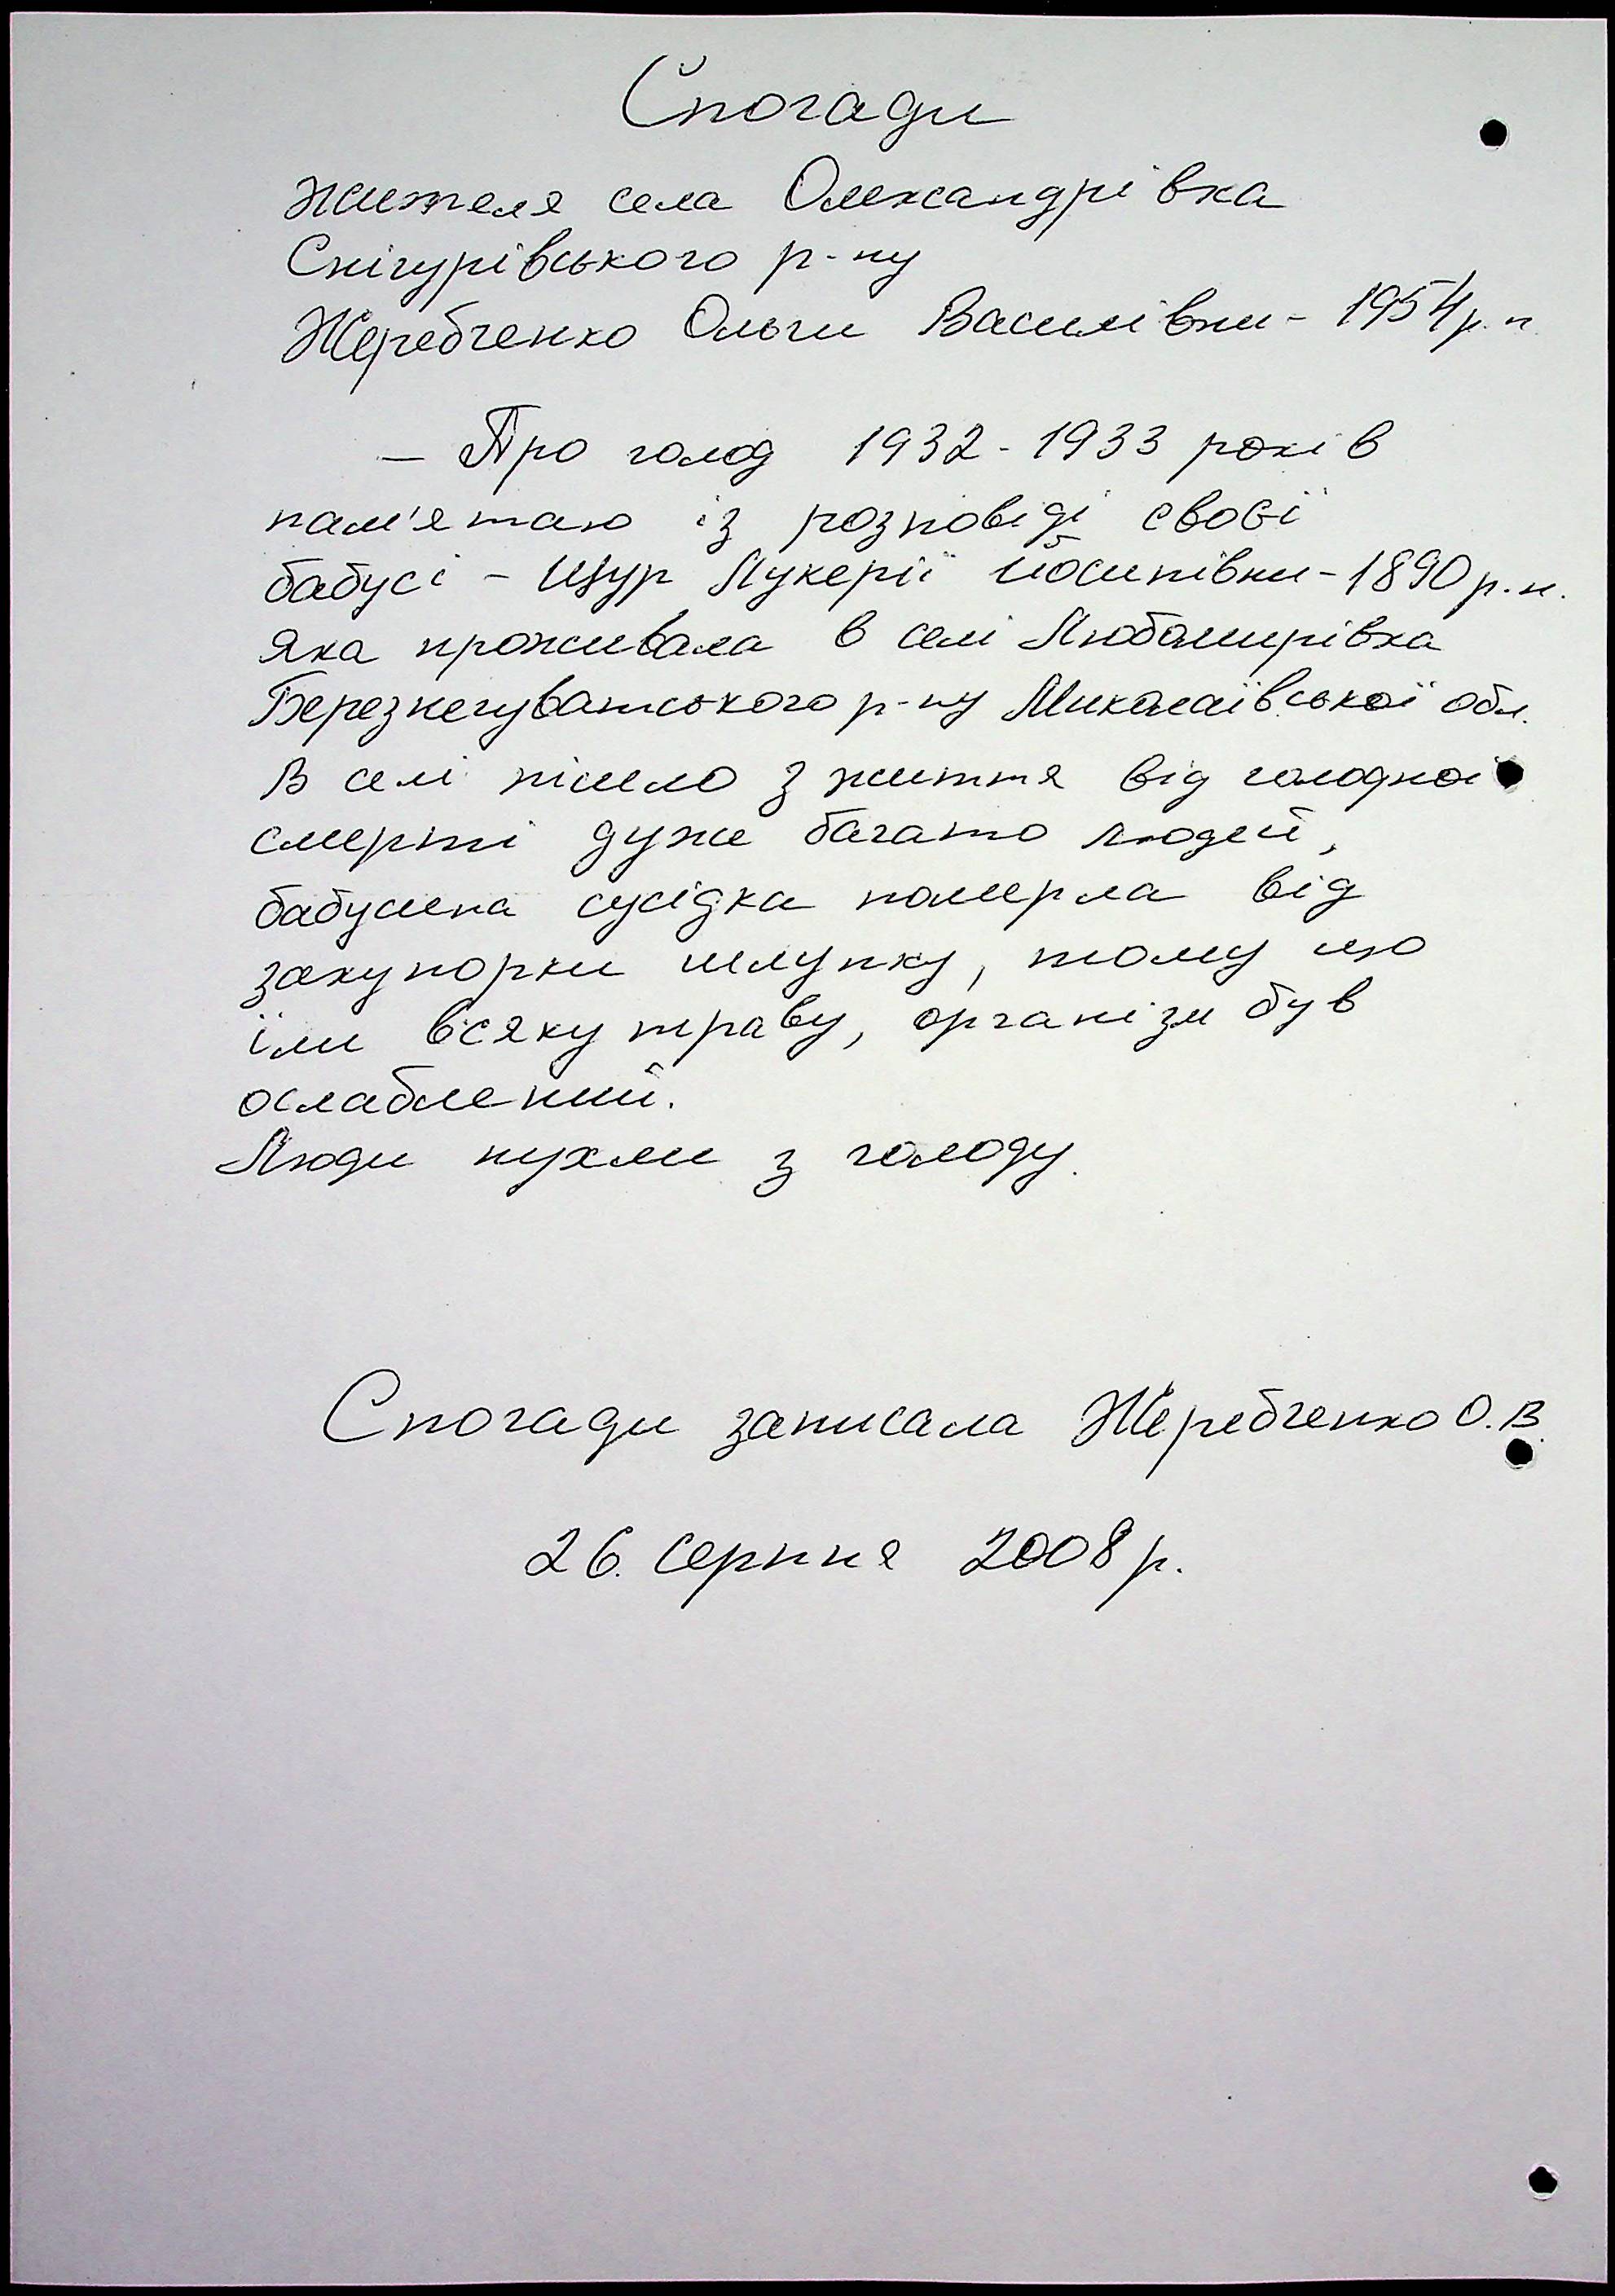 Спогади
жителя села Олександрівка
Снігурівського р-ну
Жеребченко Ольги Василівни - 1954 р.н
— Про голод 1932 - 1933 років
пам'ятаю із розповіді своєї
бабусі - Щур Лукерії Йосипівни - 1890 р.н.
яка проживала в селі Любомирівка
Березнегуватського р-ну Миколаївської обл.
В селі пішло з життя від голодної
смерті дуже багато людей,
бабусина сусідка померла від
закупорки шлунку, тому що
їли всяку траву, організм був
ослаблений.
Люди пухли з голоду.
Спогади записала Жеребченко О.В.
26. серпня 2008 р.